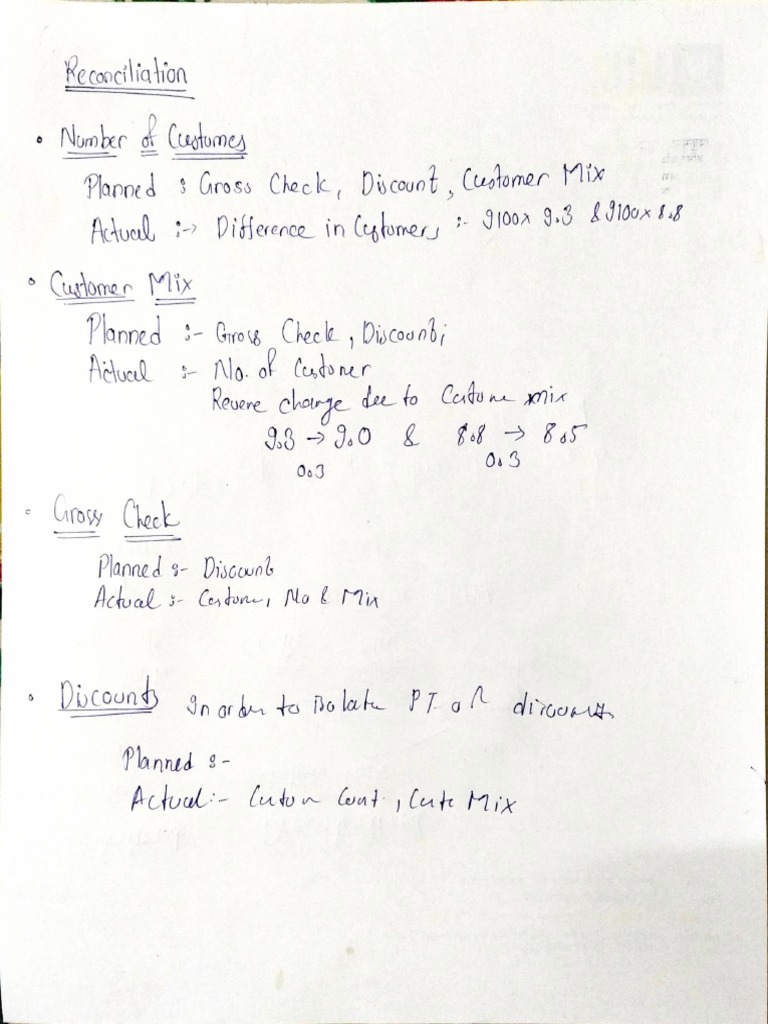 Reconciliation
• Number of Customes
Planned : Gross Check, Discount, Customer Mix
Actual :-> Difference in Customers :- 9100x 9.3 & 9100x 8.8
• Customer Mix
Planned :- Gross Check, Discount;
Actual :- No. of Customer
Revene change due to Custome mix
9.3 → 9.0 & 8.8 → 8.5
0.3 0.3
• Gross Check
Planned :- Discount
Actual :- Custome, No & Mix
• Discounts In order to isolate of discounts
Planned :-
Actual :- Mix